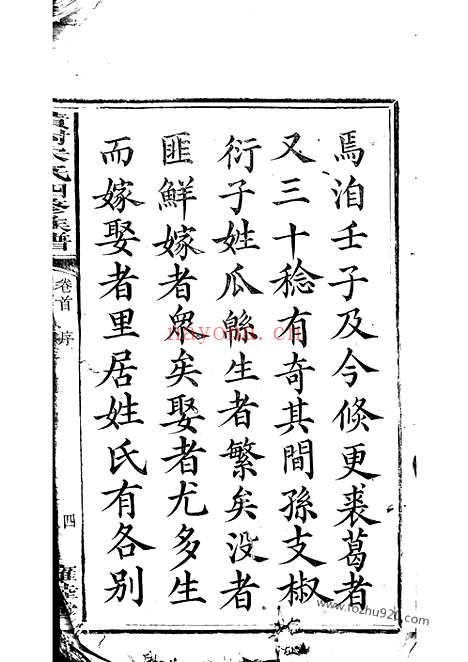 焉洎壬子及今倐更裘葛者
又三十稔有奇其間孫支椒
衍子姓瓜緜生者繁矣没者
匪鮮嫁者衆矣娶者尤多生
而嫁娶者里居姓氏有各别
氏四修族譜
卷首
序
四
nayona.cn
www.fozhu920.com